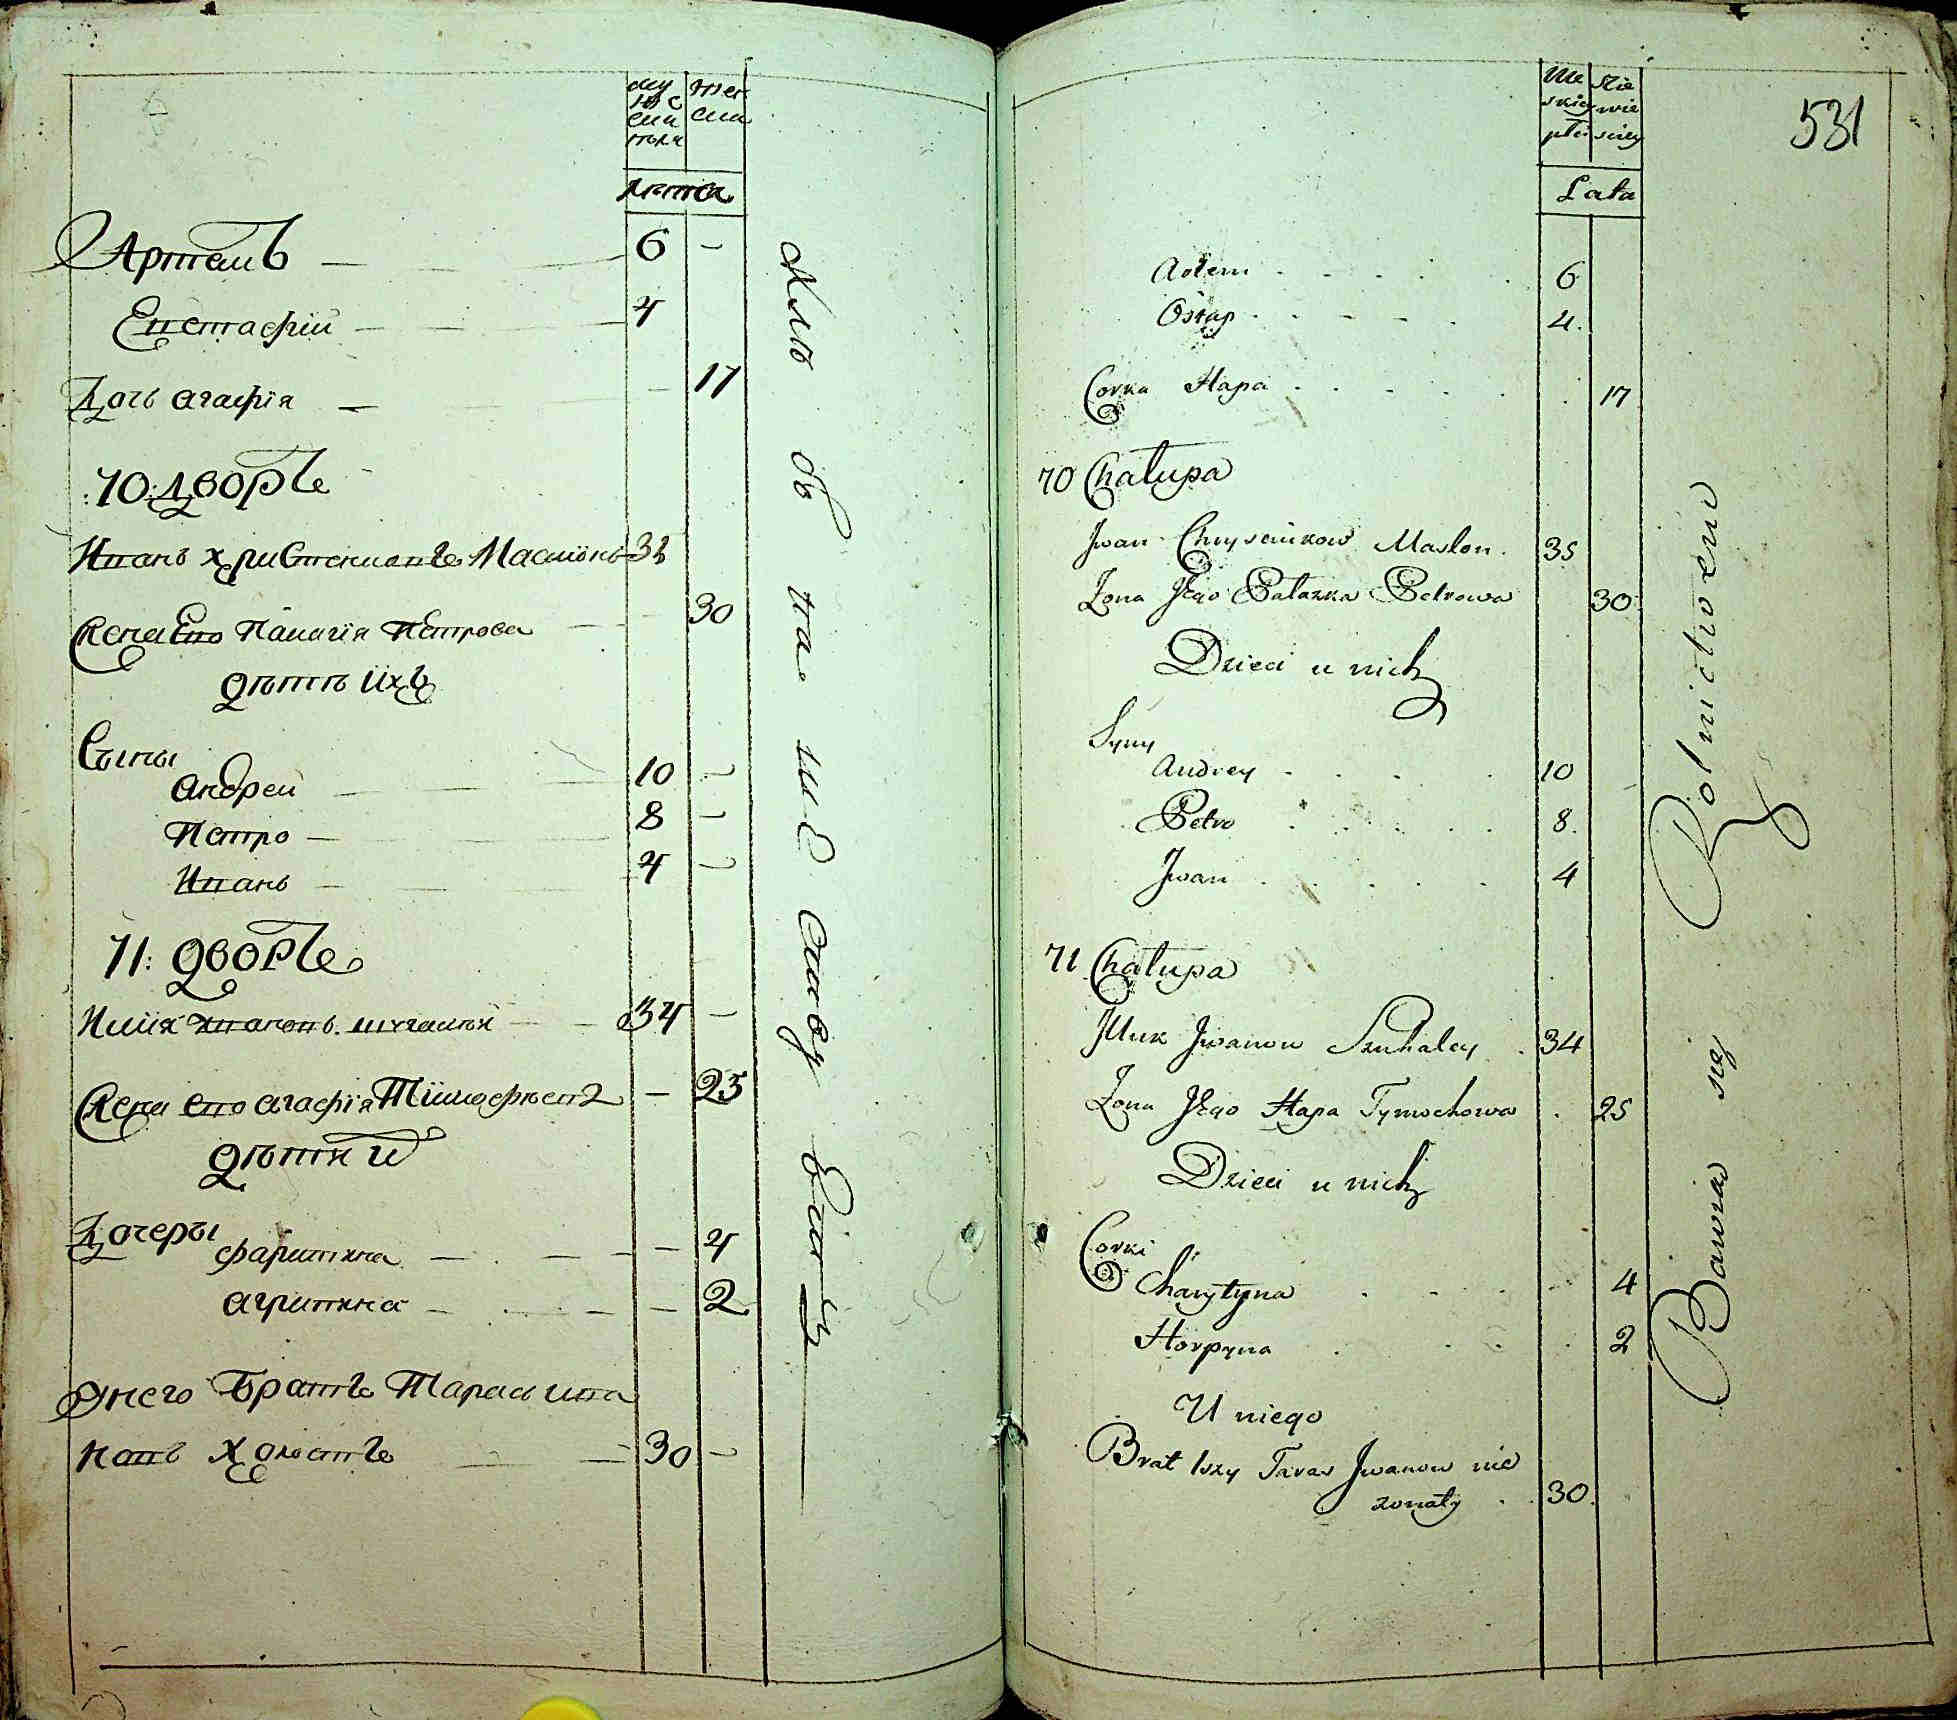 муж
ска
пола
жен
ска
лѣта
Артемъ 6 —
Евстафiй 4
Дочь агафiя — 17
:70: дворъ
Иванъ
Маслюнъ
Жена Его Палагiя Петрова 30
дѣти ихъ
Сыны
андрей 10 —
Петро 8 —
Иванъ 4 —
71: дворъ
Илiя Ивановъ 34 —
Жена его агафiя — 25
дѣти и
Дочеры
харитина — 4
агрипина — 2
Унего братъ Тарасъ ива
новъ холостъ 30 —
531
Me
skiey
płci
Lata
Artem 6
Ostap 4.
Corka Hapa 17
70 Chałupa
Jwan Maslon. 35
Zona Jego Pałazka Petrowa 30
Dzieci u nich
Syny
Andrey 10
Petro 8.
Jwan 4
71 Chałupa
Jlluk Jwanow Szuhaley 34
Zona Jego Hapa Tymochowa 25
Dzieci u nich
Corki
Charytyna 4
Horpyna 2
U niego
Brat 1szy Taras Jwanow nie
zonaty 30.
Bawia się Rolnictwem